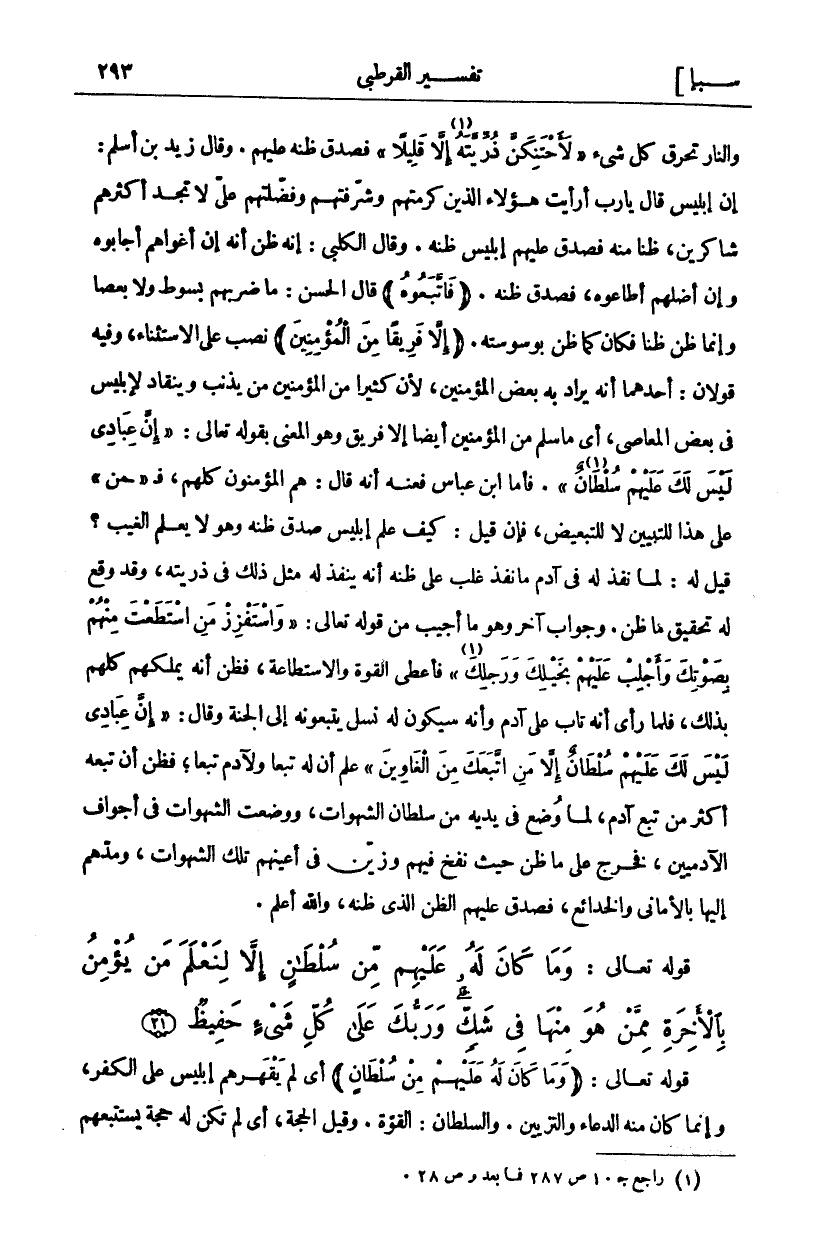 سبإ] تفسير القرطبى ٢٩٣
والنار تحرق كل شىء « لَأَحْتَنِكَنَّ ذُرِّيَّتَهُ إِلَّا قَلِيلًا (١) » فصدق ظنه عليهم . وقال زيد بن أسلم :
إن إبليس قال يارب أرأيت هـؤلاء الذين كرمتهم وشرّفتهـم وفضّلتهم علىّ لا تجـد أكثرهم
شاكرين، ظنا منه فصدق عليهم إبليس ظنه . وقال الكلبى : إنه ظن أنه إن أغواهم أجابوه
وإن أضلهم أطاعوه، فصدق ظنه . ﴿ فَاتَّبَعُوهُ ﴾ قال الحسن : ماضربهم بسوط ولا بعصا
وإنما ظن ظنا فكان كما ظن بوسوسته. ﴿ إِلَّا فَرِيقًا مِنَ الْمُؤْمِنِينَ ﴾ نصب على الاستثناء، وفيه
قولان : أحدهما أنه يراد به بعض المؤمنين، لأن كثيرا من المؤمنين من يذنب وينقاد لإبليس
فى بعض المعاصى، أى ماسلم من المؤمنين أيضا إلا فريق وهو المعنى بقوله تعالى : « إِنَّ عِبَادِى
لَيْسَ لَكَ عَلَيْهِمْ سُلْطَانٌ (١) » . فأما ابن عباس فعنـه أنه قال : هم المؤمنون كلهم، فـ « ـمن »
على هذا للتبيين لا للتبعيض، فإن قيل : كيف علم إبليس صدق ظنه وهو لا يعـلم الغيب ؟
قيل له : لمـا نفذ له فى آدم مانفذ غلب على ظنه أنه ينفذ له مثل ذلك فى ذريته، وقد وقع
له تحقيق ما ظن. وجواب آخر وهو ما أجيب من قوله تعالى: « وَاسْتَفْزِزْ مَنِ اسْتَطَعْتَ مِنْهُمْ
بِصَوْتِكَ وَأَجْلِبْ عَلَيْهِمْ بِخَيْلِكَ وَرَجِلِكَ (١) » فأعطى القوة والاستطاعة، فظن أنه يملكهم كلهم
بذلك، فلما رأى أنه تاب على آدم وأنه سيكون له نسل يتبعونه إلى الجنة وقال: « إِنَّ عِبَادِى
لَيْسَ لَكَ عَلَيْهِمْ سُلْطَانٌ إِلَّا مَنِ اتَّبَعَكَ مِنَ الْغَاوِينَ » علم أن له تبعا ولآدم تبعا؛ فظن أن تبعه
أكثر من تبع آدم، لمـا وُضع فى يديه من سلطان الشهوات، ووضعت الشهوات فى أجواف
الآدميين ، فخـرج على ما ظن حيث نفخ فيهم وزيّن فى أعينهم تلك الشهوات ، ومدّهم
إليها بالأمانى والخدائع، فصدق عليهم الظن الذى ظنه، والله أعلم .
قوله تعـالى : وَمَا كَانَ لَهُۥ عَلَيْهِم مِّن سُلْطَـٰنٍ إِلَّا لِنَعْلَمَ مَن يُؤْمِنُ
بِٱلْأَخِرَةِ مِمَّنْ هُوَ مِنْهَا فِى شَكٍّ وَرَبُّكَ عَلَىٰ كُلِّ شَىْءٍ حَفِيظٌ ﴿٢١﴾
قوله تعـالى : ﴿ وَمَا كَانَ لَهُ عَلَيْهِـمْ مِنْ سُلْطَانٍ ﴾ أى لم يَقْهَـرهم إبليس على الكفر،
وإنما كان منه الدعاء والتزيين . والسلطان : القوّة . وقيل الحجة، أى لم تكن له حجة يستتبعهم
(١) راجع جـ ١٠ ص ٢٨٧ فـا بعد و ص ٢٨ .